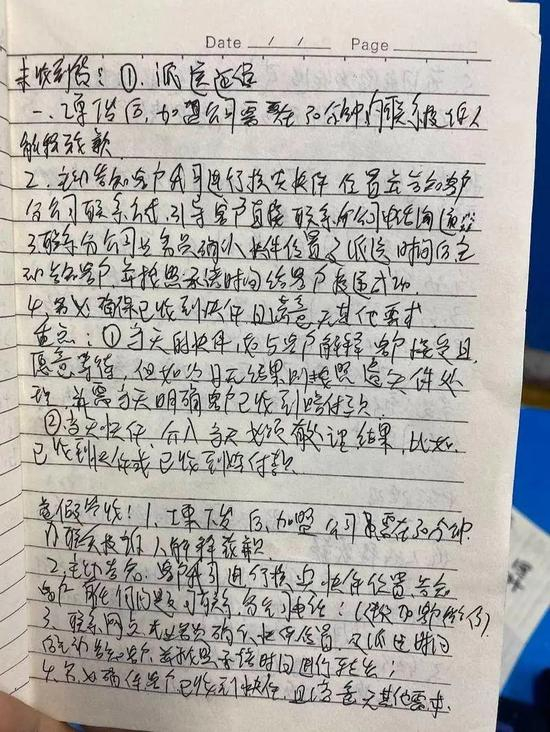 Date / / Page
未收到货：①、派送延误
一、工单下发后，加盟公司需要在30分钟内联系投诉人
解释致歉
2、主动告知客户我司进行核实快件位置并告知客户
分公司联系方式，引导客户直接联系分公司电话沟通
3、联系分公司业务员确认快件位置及派送时间后主
动告知客户，并按照承诺时间给客户投递成功
4、务必确保已收到快件且满意无其他要求
重点：①当天的快件，应与客户解释客户接受且
愿意等待，但如当日无结果则按照遗失件处
理，并需当天明确客户已收到赔付款
②当天快件，介入当天必须有处理结果，比如：
已收到快件或已收到赔付款
虚假签收！1、工单下发后，加盟公司需在30分钟
内联系投诉人解释致歉
2、主动告知客户我司进行核实快件位置，告知
客户有任何问题可联系分公司电话！
3、联系网点业务员确认快件位置及派送时间
后主动告知客户，并按照承诺时间进行转出！
4、务必确保客户已收到快件，且满意无其他要求